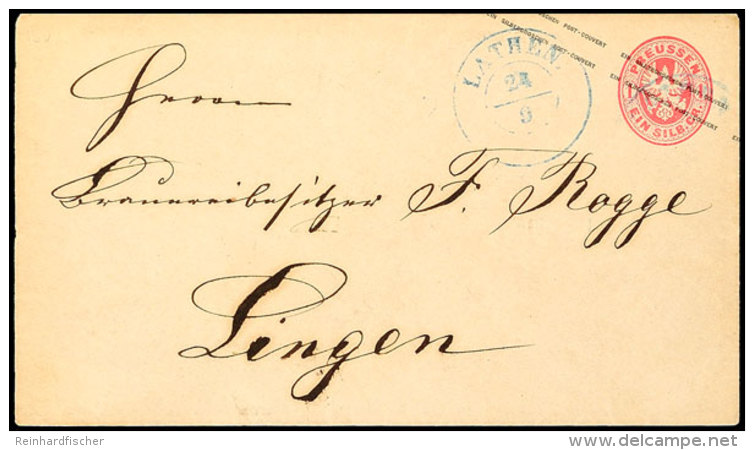 EIN SILBERGROSCHEN POST-COUVERT
PREUSSEN
EIN SILB.GR.
LATHEN
24
9
Herrn
Brauereibesitzer F. Rogge
Lingen
Reinhardfischer
© delcampe.net